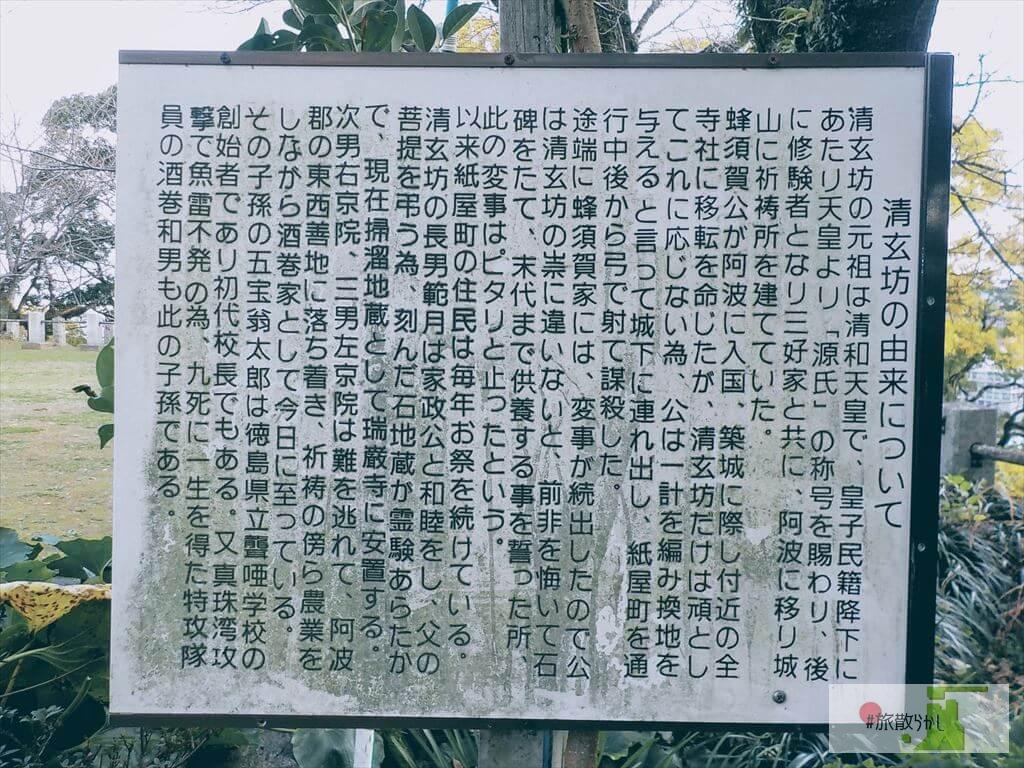 清玄坊の由来について
清玄坊の元祖は清和天皇で、皇子民籍降下に
あたり天皇より「源氏」の称号を賜わり、後
に修験者となり三好家と共に、阿波に移り城
山に祈祷所を建てていた。
蜂須賀公が阿波に入国、築城に際し付近の全
寺社に移転を命じたが、清玄坊だけは頑とし
てこれに応じない為、公は一計を編み換地を
与えると言って城下に連れ出し、紙屋町を通
行中後から弓で射て謀殺した。
途端に蜂須賀家には、変事が続出したので公
は清玄坊の祟に違いないと、前非を悔いて石
碑をたて、末代まで供養する事を誓った所、
此の変事はピタリと止ったという。
以来紙屋町の住民は毎年お祭を続けている。
清玄坊の長男範月は家政公と和睦をし、父の
菩提を弔う為、刻んだ石地蔵が霊験あらたか
で、現在掃溜地蔵として瑞巌寺に安置する。
次男右京院、三男左京院は難を逃れて、阿波
郡の東西善地に落ち着き、祈祷の傍ら農業を
しながら酒巻家として今日に至っている。
その子孫の五宝翁太郎は徳島県立聾唖学校の
創始者であり初代校長でもある。又真珠湾攻
撃で魚雷不発の為、九死に一生を得た特攻隊
員の酒巻和男も此の子孫である。
#旅散らかし